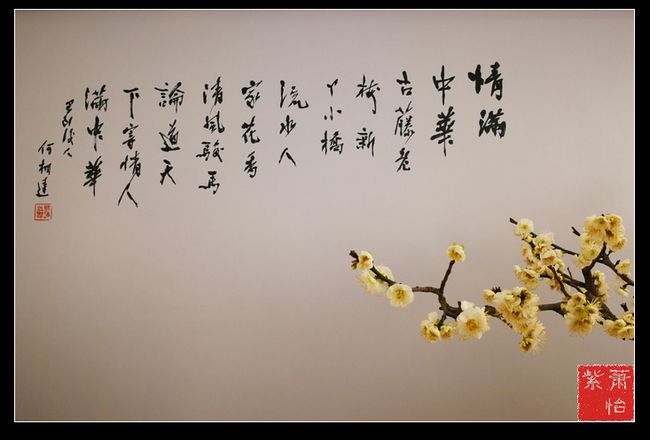 情滿
中華
古藤老
梅新
丫小橋
流水人
家花香
清風駿馬
論道天
下寄情人
滿中華
何柳達
蕭怡
紫